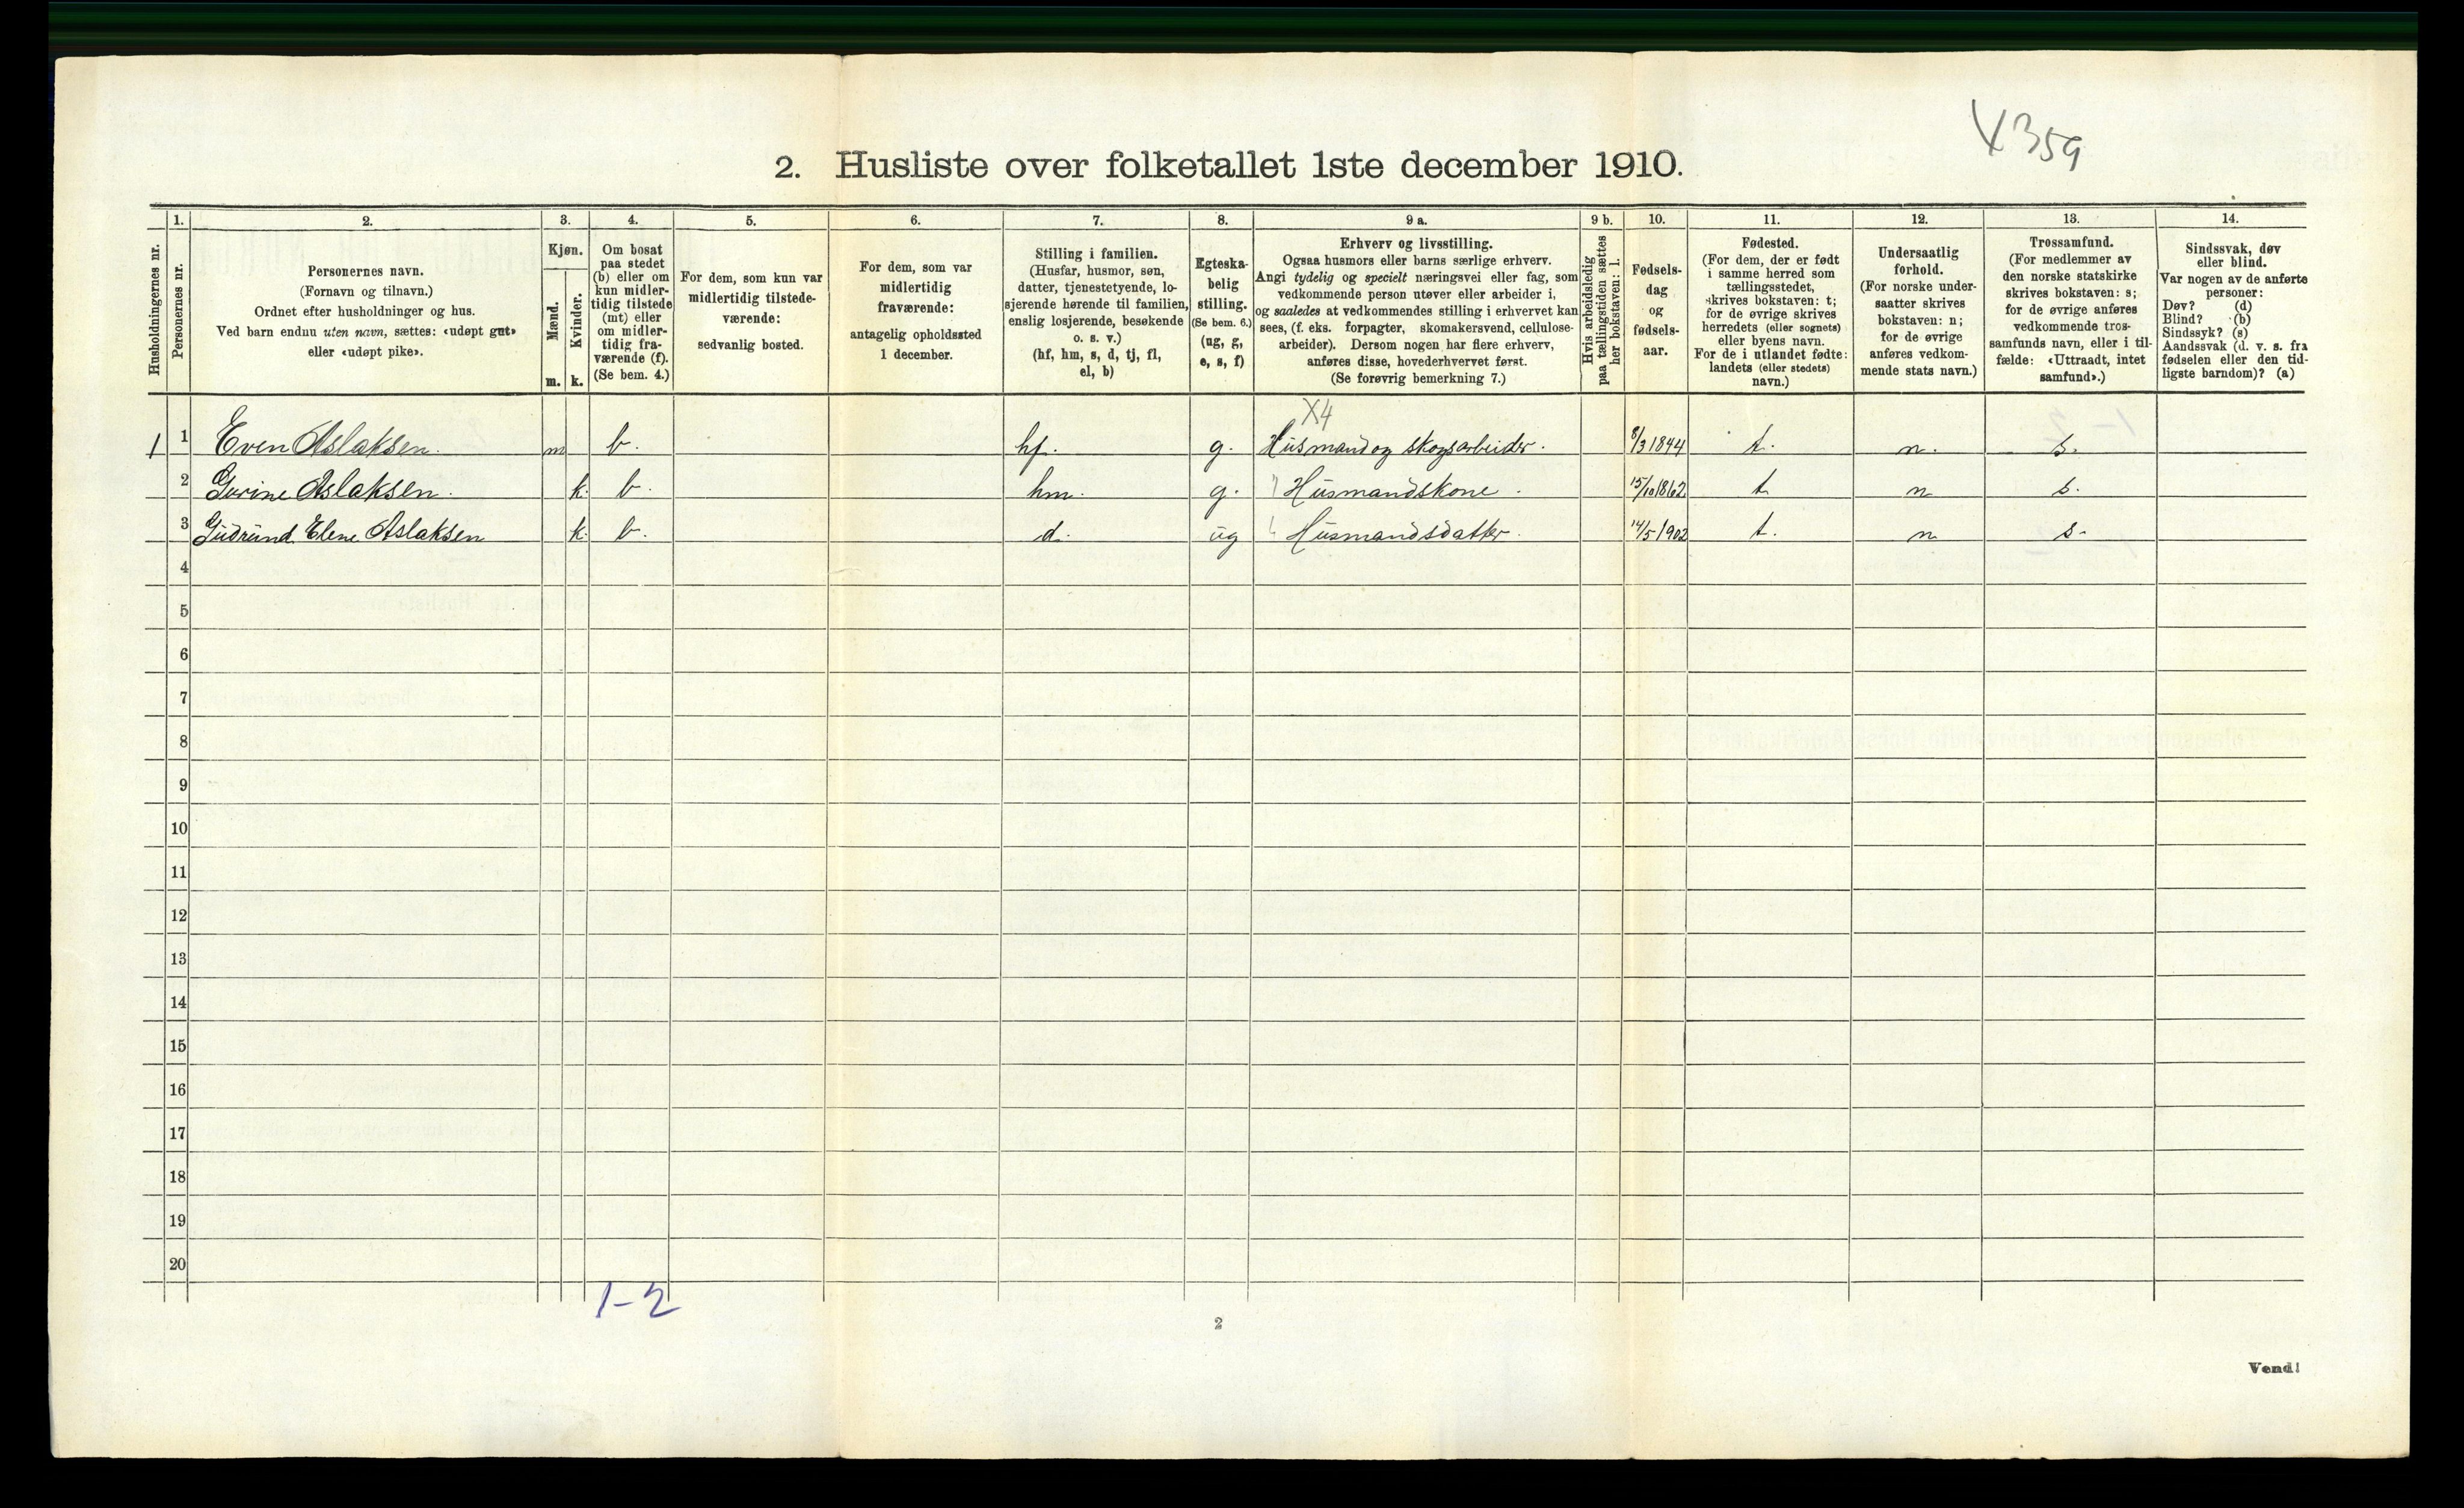 X359
2. Husliste over folketallet 1ste december 1910.
Husholdningernes nr.
1.
Personernes nr.
2.
Personernes navn.
(Fornavn og tilnavn.)
Ordnet efter husholdninger og hus.
Ved barn endnu uten navn, sættes: «udøpt gut»
eller «udøpt pike».
3.
Kjøn.
Mænd.
m.
Kvinder.
k.
4.
Om bosat
paa stedet
(b) eller om
kun midler-
tidig tilstede
(mt) eller
om midler-
tidig fra-
værende (f).
(Se bem. 4.)
5.
For dem, som kun var
midlertidig tilstede-
værende:
sedvanlig bosted.
6.
For dem, som var
midlertidig
fraværende:
antagelig opholdssted
1 december.
7.
Stilling i familien.
(Husfar, husmor, søn,
datter, tjenestetyende, lo-
sjerende hørende til familien,
enslig losjerende, besøkende
o. s. v.)
(hf, hm, s, d, tj, fl,
el, b)
8.
Egteska-
belig
stilling.
(Se bem. 6.)
(ug, g,
e, s, f)
9 a.
Erhverv og livsstilling.
Ogsaa husmors eller barns særlige erhverv.
Angi tydelig og specielt næringsvei eller fag, som
vedkommende person utøver eller arbeider i,
og saaledes at vedkommendes stilling i erhvervet kan
sees, (f. eks. forpagter, skomakersvend, cellulose-
arbeider). Dersom nogen har flere erhverv,
anføres disse, hovederhvervet først.
(Se forøvrig bemerkning 7.)
9 b.
Hvis arbeidsledig
paa tællingstiden sættes
her bokstaven: l.
10.
Fødsels-
dag
og
fødsels-
aar.
11.
Fødested.
(For dem, der er født
i samme herred som
tællingsstedet,
skrives bokstaven: t;
for de øvrige skrives
herredets (eller sognets)
eller byens navn.
For de i utlandet fødte:
landets (eller stedets)
navn.)
12.
Undersaatlig
forhold.
(For norske under-
saatter skrives
bokstaven: n;
for de øvrige
anføres vedkom-
mende stats navn.)
13.
Trossamfund.
(For medlemmer av
den norske statskirke
skrives bokstaven: s;
for de øvrige anføres
vedkommende tros-
samfunds navn, eller i til-
fælde: «Uttraadt, intet
samfund».)
14.
Sindssvak, døv
eller blind.
Var nogen av de anførte
personer:
Døv? (d)
Blind? (b)
Sindssyk? (s)
Aandssvak (d. v. s. fra
fødselen eller den tid-
ligste barndom)? (a)
X4
1 1 Even Aslaksen. m b. hf. g. Husmand og skogsarbeider. 8/3 1844 t. n. s.
2 Gurine Aslaksen. k. b. hm. g. Husmandskone. 15/10 1862 t. n s.
3 Gudrund Elene Aslaksen k. b. d. ug Husmandsdatter. 14/5 1902 t. n s.
4
5
6
7
8
9
10
11
12
13
14
15
16
17
18
19
20
1-2
2
Vend!